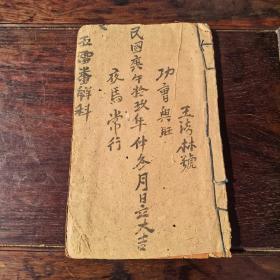 王法林號
功會興旺
民國庚午拾玖年仲冬月日立大吉
夜馬常行
五雷番解科